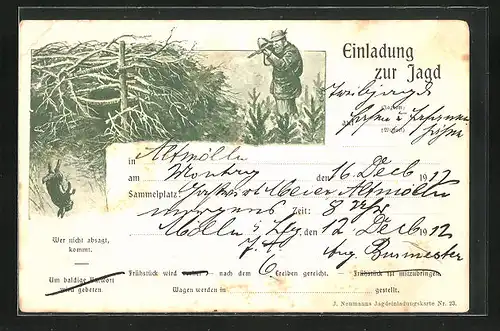 Einladung
zur Jagd
Treibjagd
(Datum)
Auf
(Wofür)
in Altmölln
am Montag den 16 Decb 1912
Sammelplatz: Gastwirt Meier Altmölln
morgens Zeit: 8 Uhr
Mölln i Lbg. den 12 Decb 1912
Wer nicht absagt,
kommt.
Aug. Burmester
Um baldige Antwort
wird gebeten.
Frühstück wird nach dem 6 Treiben gereicht. Frühstück ist mitzubringen.
Wagen werden in gestellt.
J. Neumanns Jagdeinladungskarte Nr. 23.